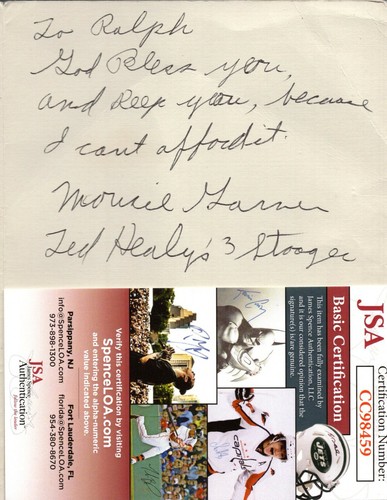 To Ralph
God Bless you,
and Keep you, because
I cant affordit.
Mousie Garner
Ted Healy's 3 Stooges
Certification Number:
CC98459
Basic Certification
This item has been fully examined by
James Spence Authentication, LLC
and it is our considered opinion that the
signature(s) is/are genuine.
JETS
Verify this certification by visiting
SpenceLOA.com
and entering the alpha-numeric
value indicated above.
Parsippany, NJ
info@SpenceLOA.com
973-898-1300
Fort Lauderdale, FL
florida@SpenceLOA.com
954-380-8670
JSA
James Spence
Authentication
JSA